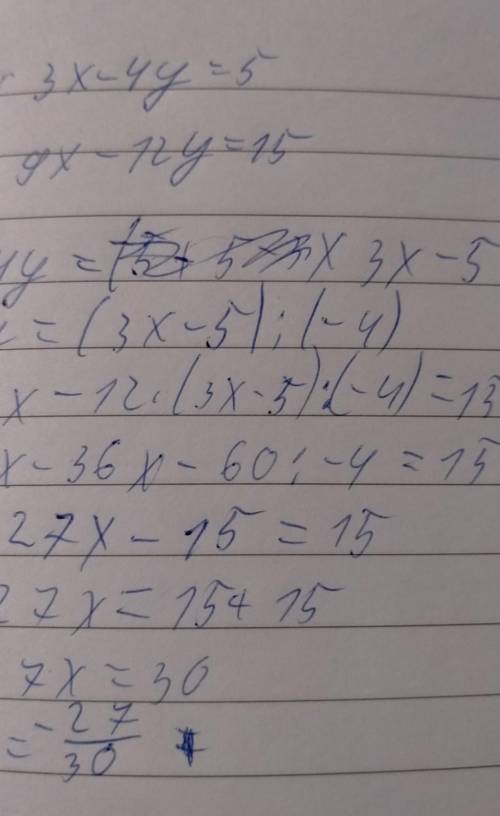 3x-4y=5
9x-12y=15
4y= 3x-5
=(3x-5):(-4)
x-12·(3x-5):(-4)=15
x-36x-60:-4=15
27x-15=15
27x=15+15
7x=30
=-27/30